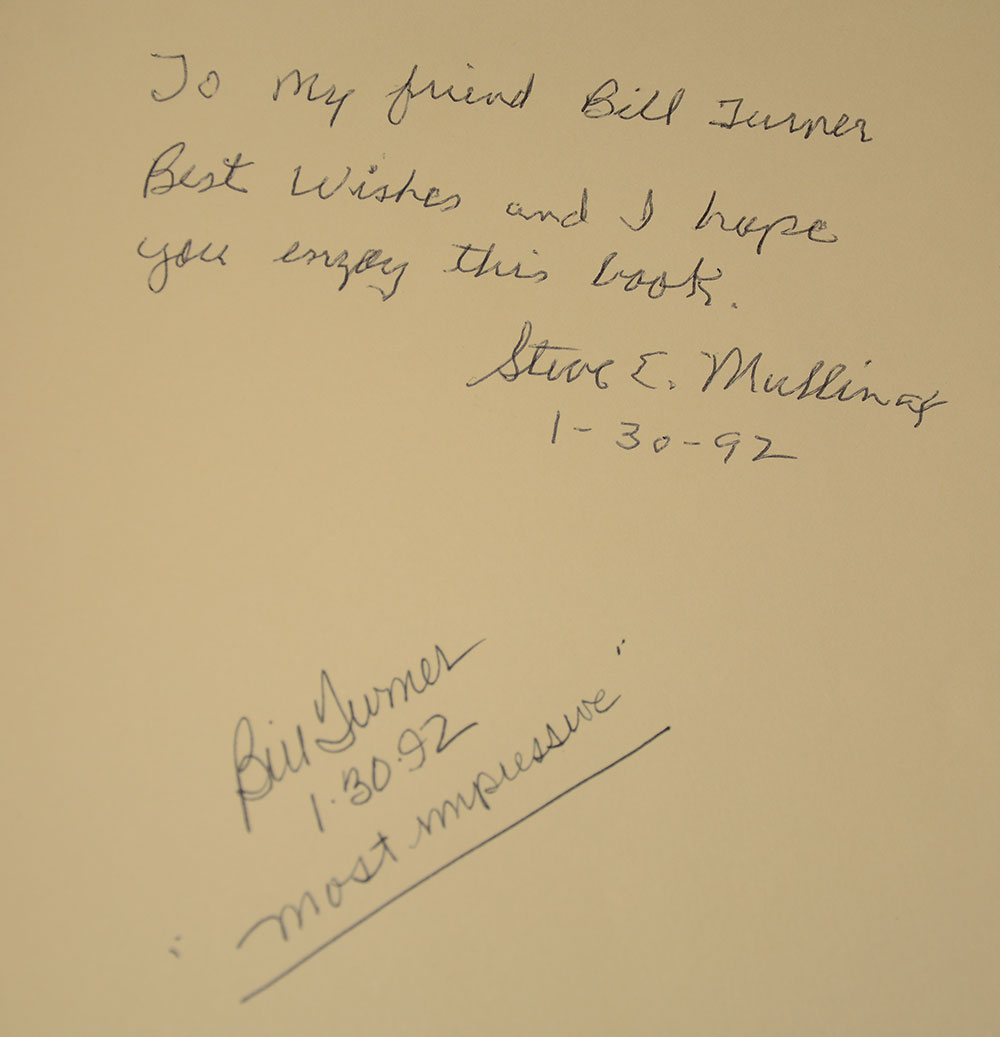 To My friend Bill Turner
Best Wishes and I hope
you enjoy this book.
Steve E. Mullinax
1-30-92
Bill Turner
1.30.92
"most impressive"